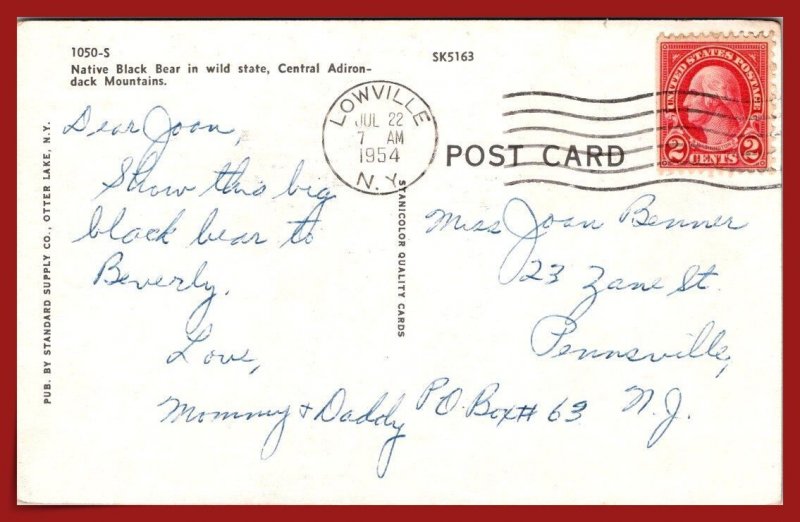 1050-S
Native Black Bear in wild state, Central Adiron-
dack Mountains.
SK5163
LOWVILLE
JUL 22
7 AM
1954
N.Y.
UNITED STATES POSTAGE
2 CENTS 2
POST CARD
PUB. BY STANDARD SUPPLY CO., OTTER LAKE, N.Y.
STANICOLOR QUALITY CARDS
Dear Joan,
Show this big
black bear to
Beverly.
Love,
Mommy + Daddy
Miss Joan Benner
23 Zane St.
Pennsville,
P.O. Box # 63 N.J.